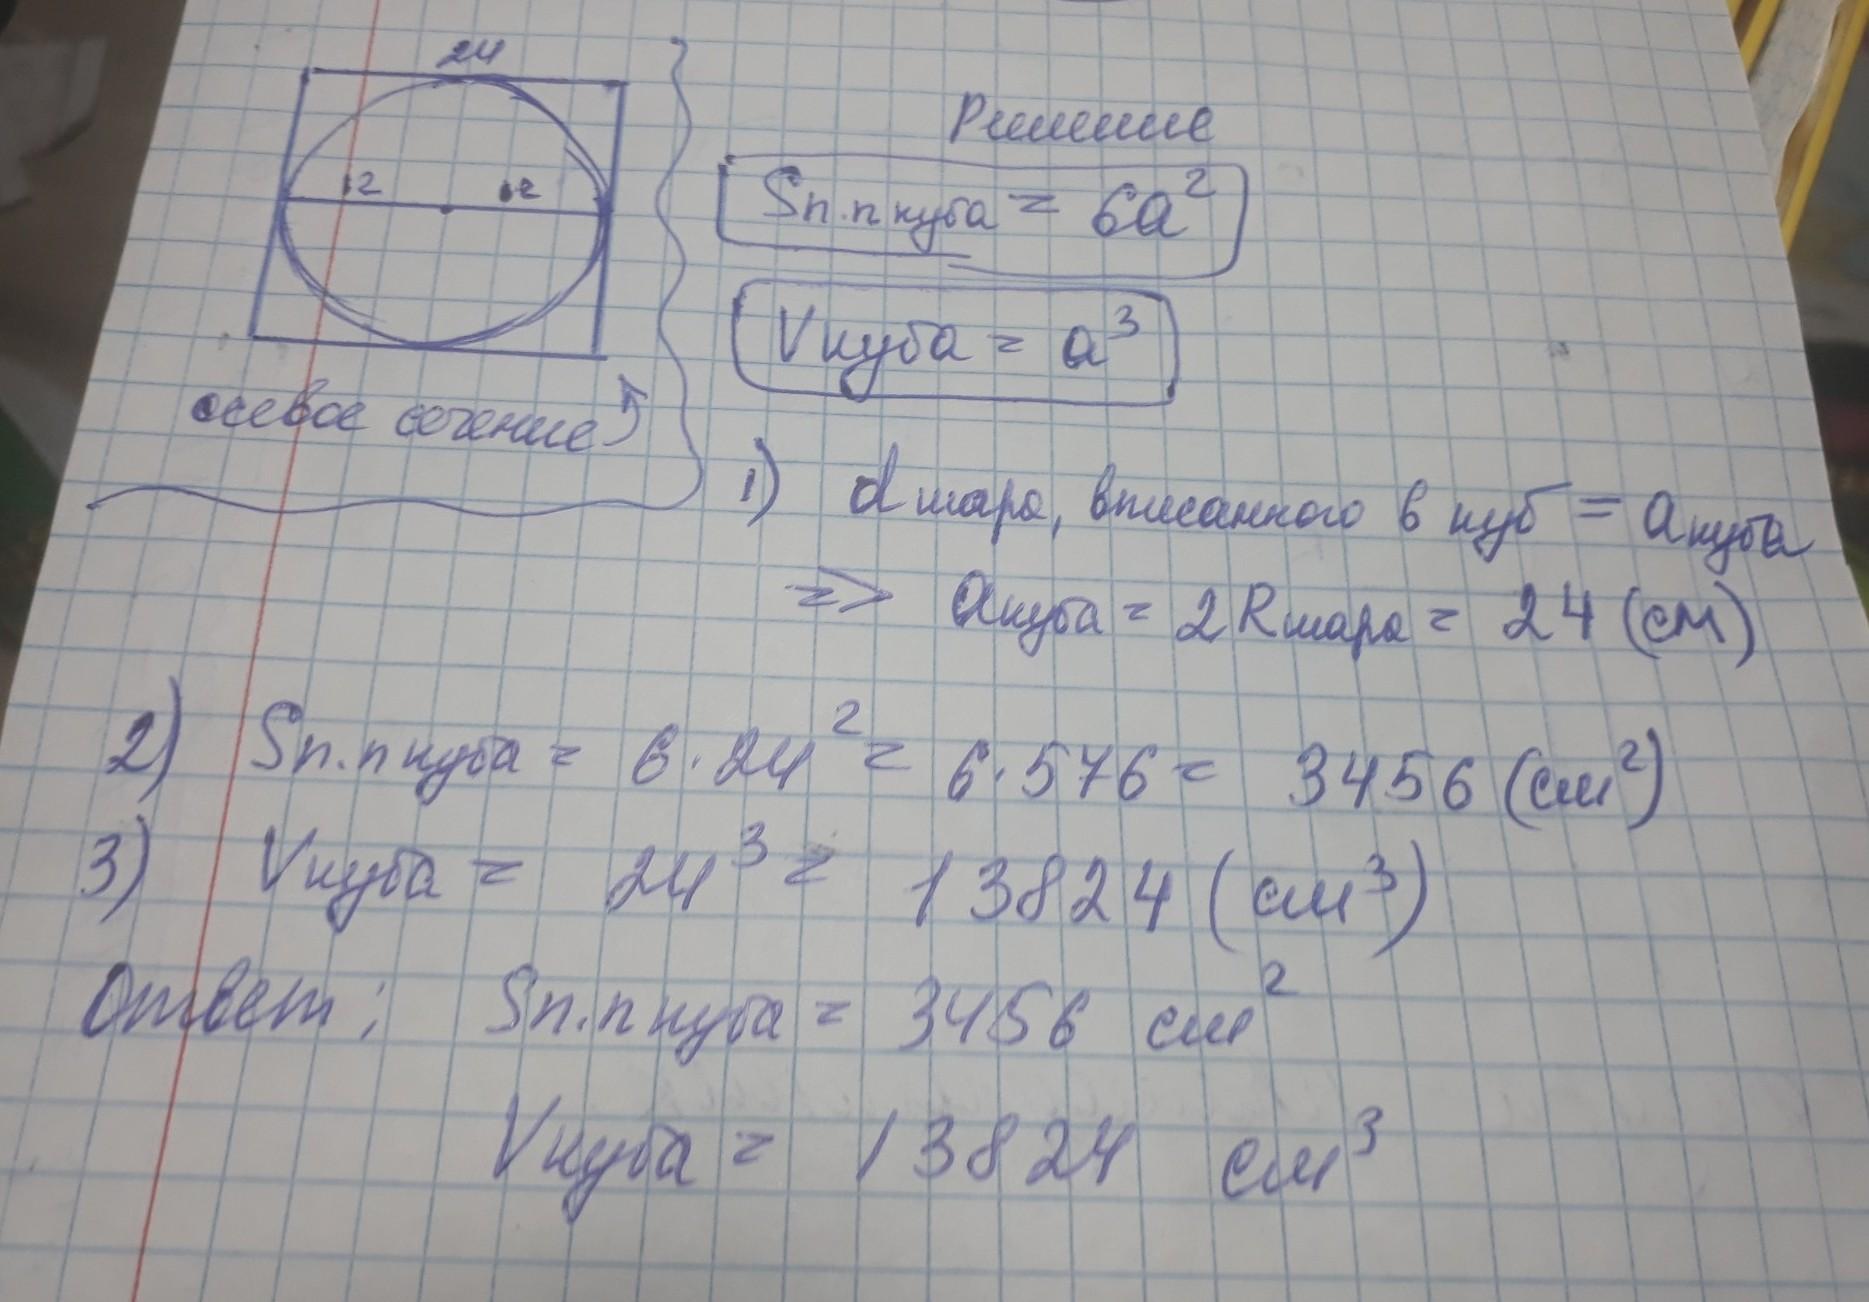 24
12 12
осевое сечение
Решение
Sп.п куба = 6a²
Vкуба = a³
1) d шара, вписанного в куб = a куба
=> a куба = 2R шара = 24 (см)
2) Sп.п куба = 6·24² = 6·576 = 3456 (см²)
3) Vкуба = 24³ = 13824 (см³)
Ответ: Sп.п куба = 3456 см²
Vкуба = 13824 см³